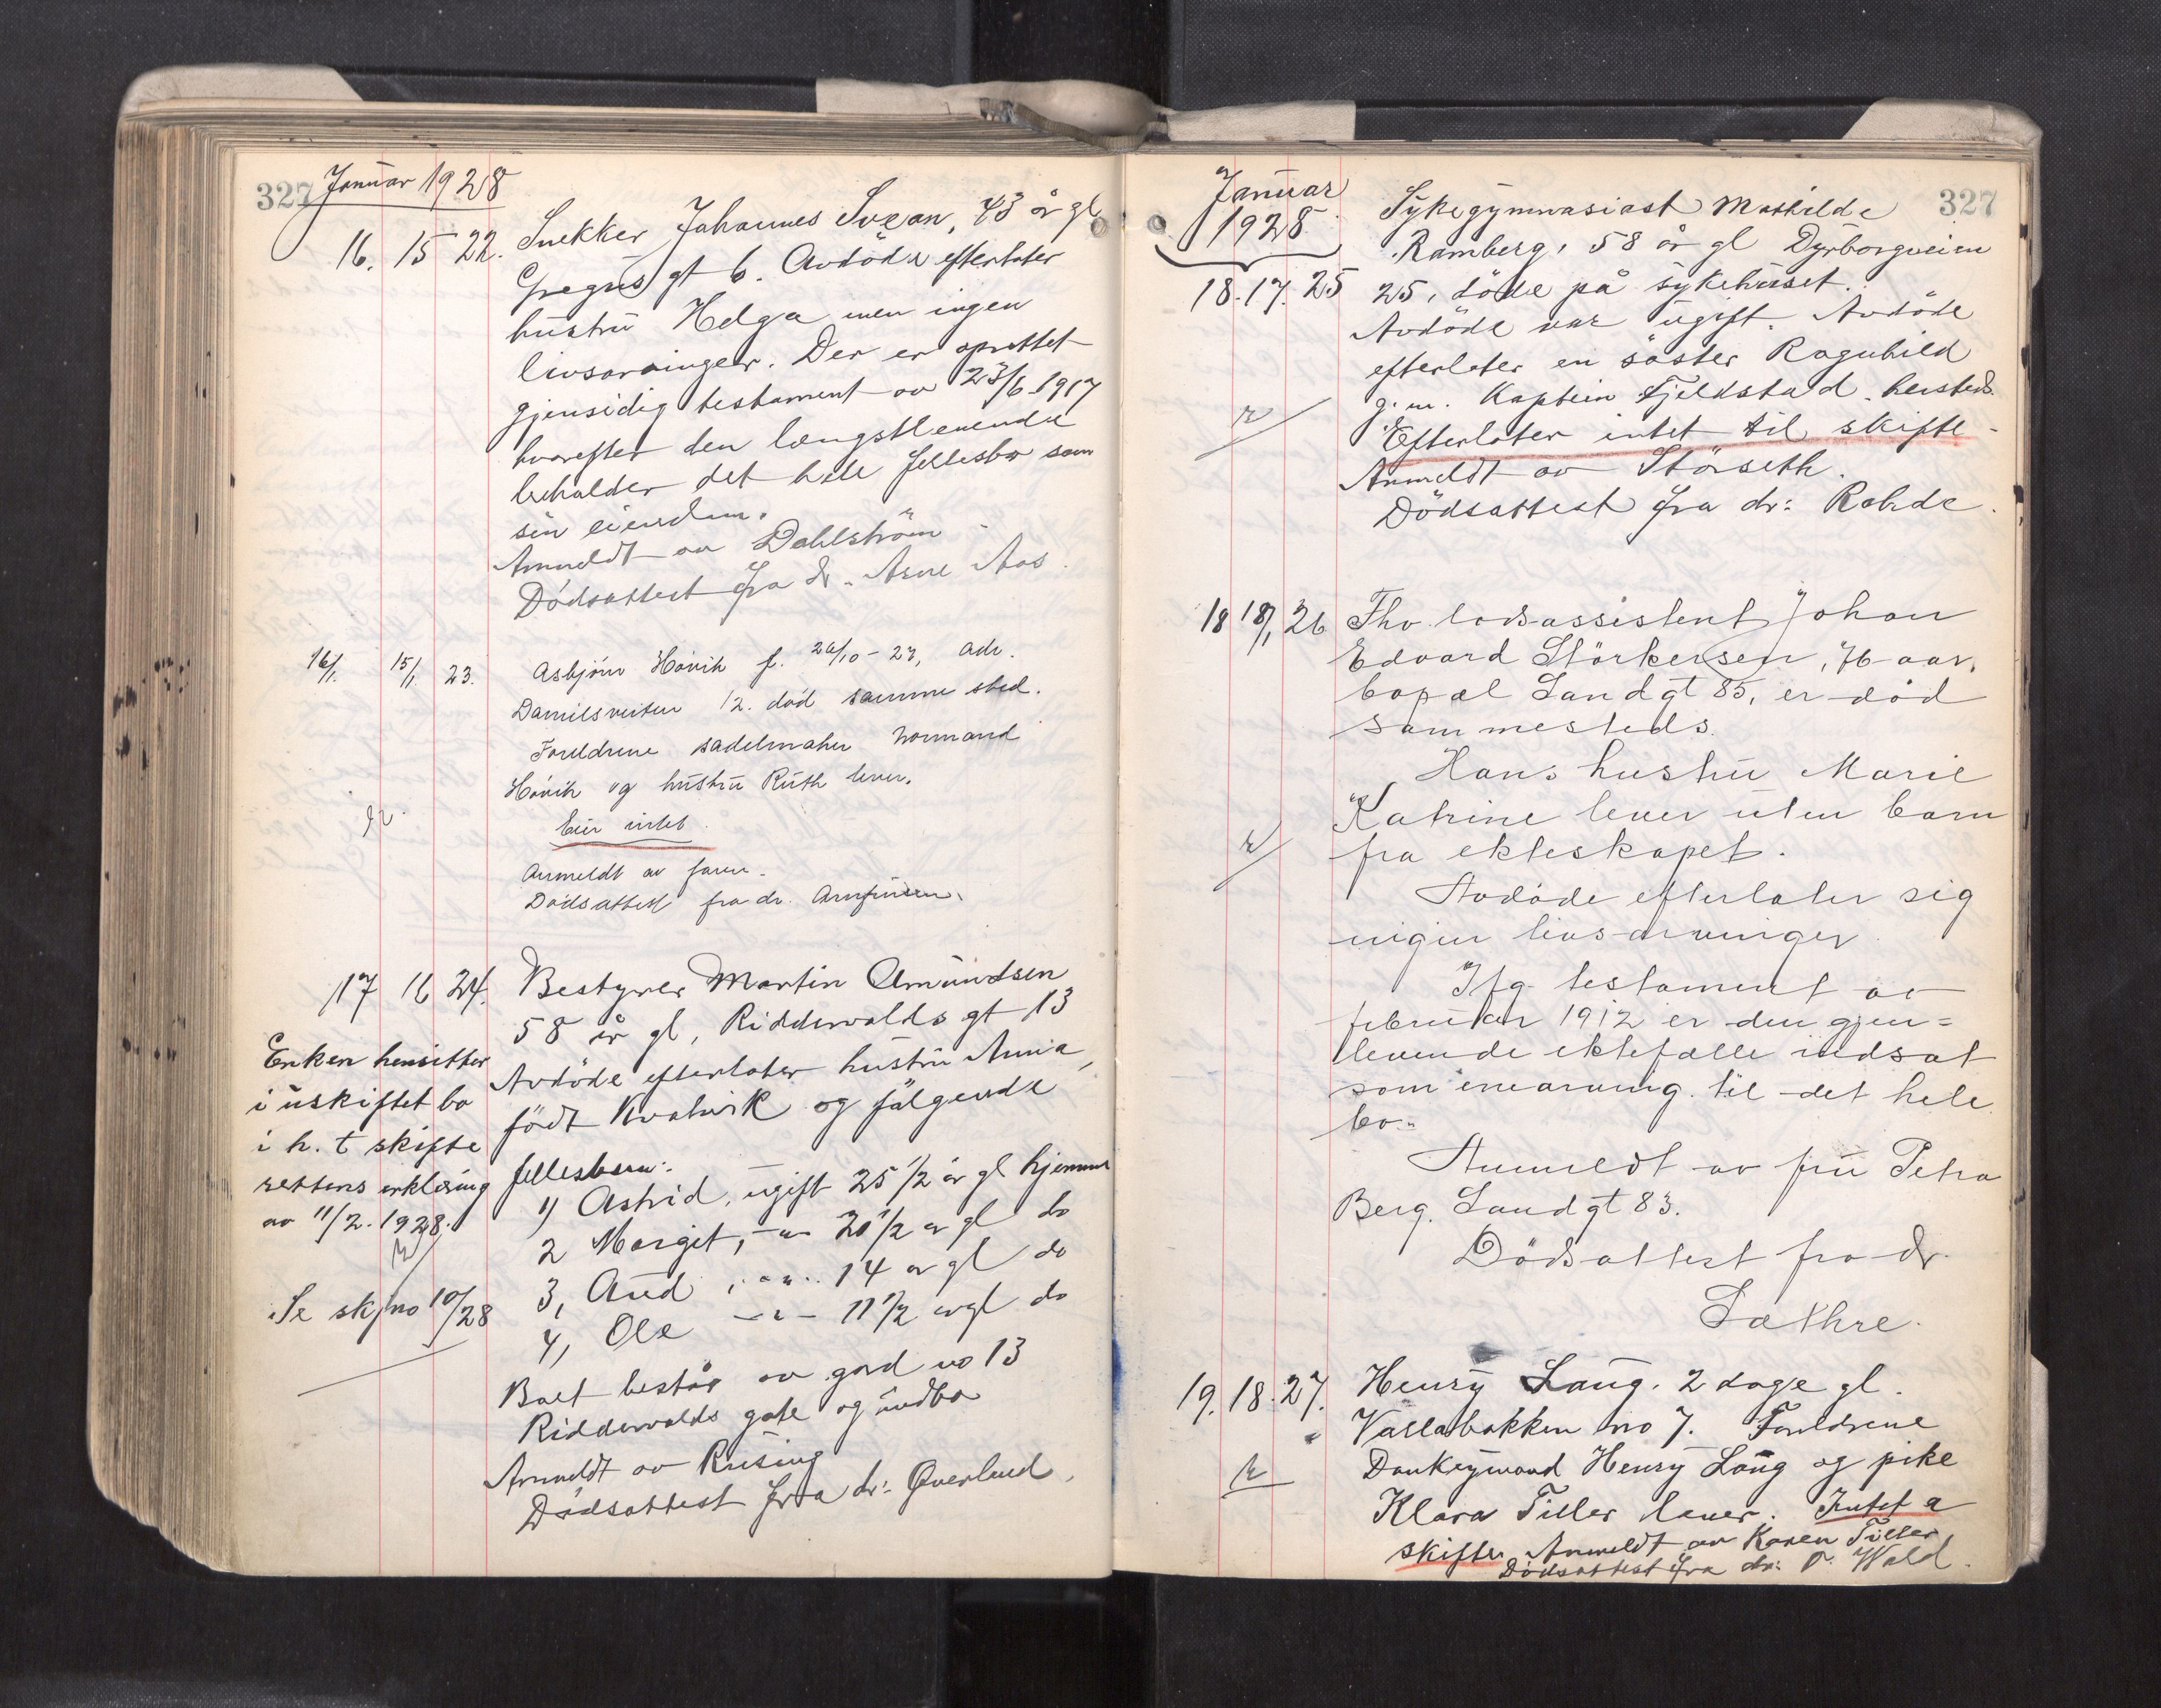 327 Januar 1928
16. 15 22. Snekker Johannes Svean, 43 år gl
Gregus gt 6. Avdöde efterlater
hustru Helga men ingen
livsarvinger. Der er oprettet
gjensidig testament av 23/6 1917
hvorefter den lengstlevende
beholder det hele fellesbo som
sin eiendom.
Anmeldt av Dahlström
Dödsattest fra dr. Arne Aas.
16/1. 15/1. 23. Asbjörn Hövik f. 26/10-27, adr.
Danielsveiten 12. död samme sted.
Foreldrene sadelmaker Normand
Hövik og hustru Ruth lever.
Eier intet.
Anmeldt av faren.
Dödsattest fra dr. Arnfinsen.
17 16 24. Bestyrer Martin Amundsen
58 år gl, Ridderwolds gt 13
Avdöde efterlater hustru Anna,
födt Kvalvik og fölgende
fellesbarn:
1) Astrid, ugift 25 1/2 år gl hjemme
2 Margit, -"- 20 1/2 år gl do
3, Aud, -"- 14 år gl do
4, Ole -"- 11 1/2 årgl do
Boet består av gård no 13
Ridderwolds gate og indbo
Anmeldt av Rusing
Dödsattest fra dr: Qverlund.
Enken hensitter
i uskiftet bo
i h. t skifte
rettens erklæring
av 11/2. 1928.
Se skj no 10/28
Januar
1928.
327
18. 17. 25 Sykegymnasiast Mathilde
Ramberg, 58 år gl Dyrborgveien
25, döde på sykehuset.
Avdöde var ugift. Avdöde
efterlater en söster Ragnhild
g. m. Kaptein Fjeldstad, hersteds.
Efterlater intet til skifte.
Anmeldt av Störseth.
Dödsattest fra dr: Rohde.
18 18/1 26 Fhv. lodsassistent Johan
Edvard Störkersen, 76 aar,
bopæl Sandgt 85, er död
sammesteds.
Hans hustru Marie
Katrine lever uten barn
fra ekteskapet.
Avdöde efterlater sig
ingen livsarvinger.
Ifg. testament av
februar 1912 er den gjen=
levende ektefælle indsat
som enearving til det hele
bo.
Anmeldt av fru Petra
Berg. Sandgt 83.
Dödsattest fra dr.
Sæthre.
19. 18. 27. Henry Lang. 2 dage gl.
Vallabakken no 7. Foreldrene
Donkeymand Henry Lang og pike
Klara Tiller lever. Intet a
skifte. Anmeldt av Karen Tiller
Dödsattest fra dr: P. Wold.